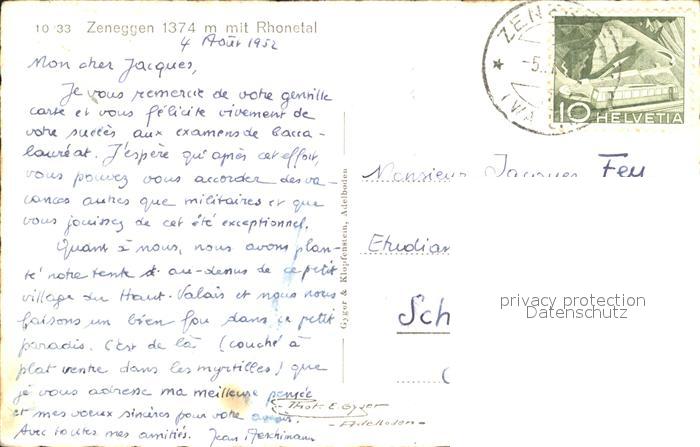 10 33 Zeneggen 1374 m mit Rhonetal
4 Août 1952
Mon cher Jacques,
Je vous remercie de votre gentille
carte et vous félicite vivement de
votre succès aux examens de bacca-
lauréat. J'espère qu'après cet effort,
vous pouvez vous accorder des va-
cances autres que militaires et que
vous jouissez de cet été exceptionnel.
Quant à nous, nous avons plan-
té notre tente au-dessus de ce petit
village du Haut-Valais et nous nous
faisons un bien fou dans ce petit
paradis. C'est de là (couché à
plat ventre dans les myrtilles) que
je vous adresse ma meilleure pensée
et mes vœux sincères pour votre avenir.
Avec toutes mes amitiés. Jean Aeschimann
Phot. E. Gyger
- Adelboden -
Gyger & Klopfenstein, Adelboden
ZENE
-5.
(WA
10 HELVETIA
Monsieur Jacques Feu
Etudian
Sch
privacy protection
Datenschutz